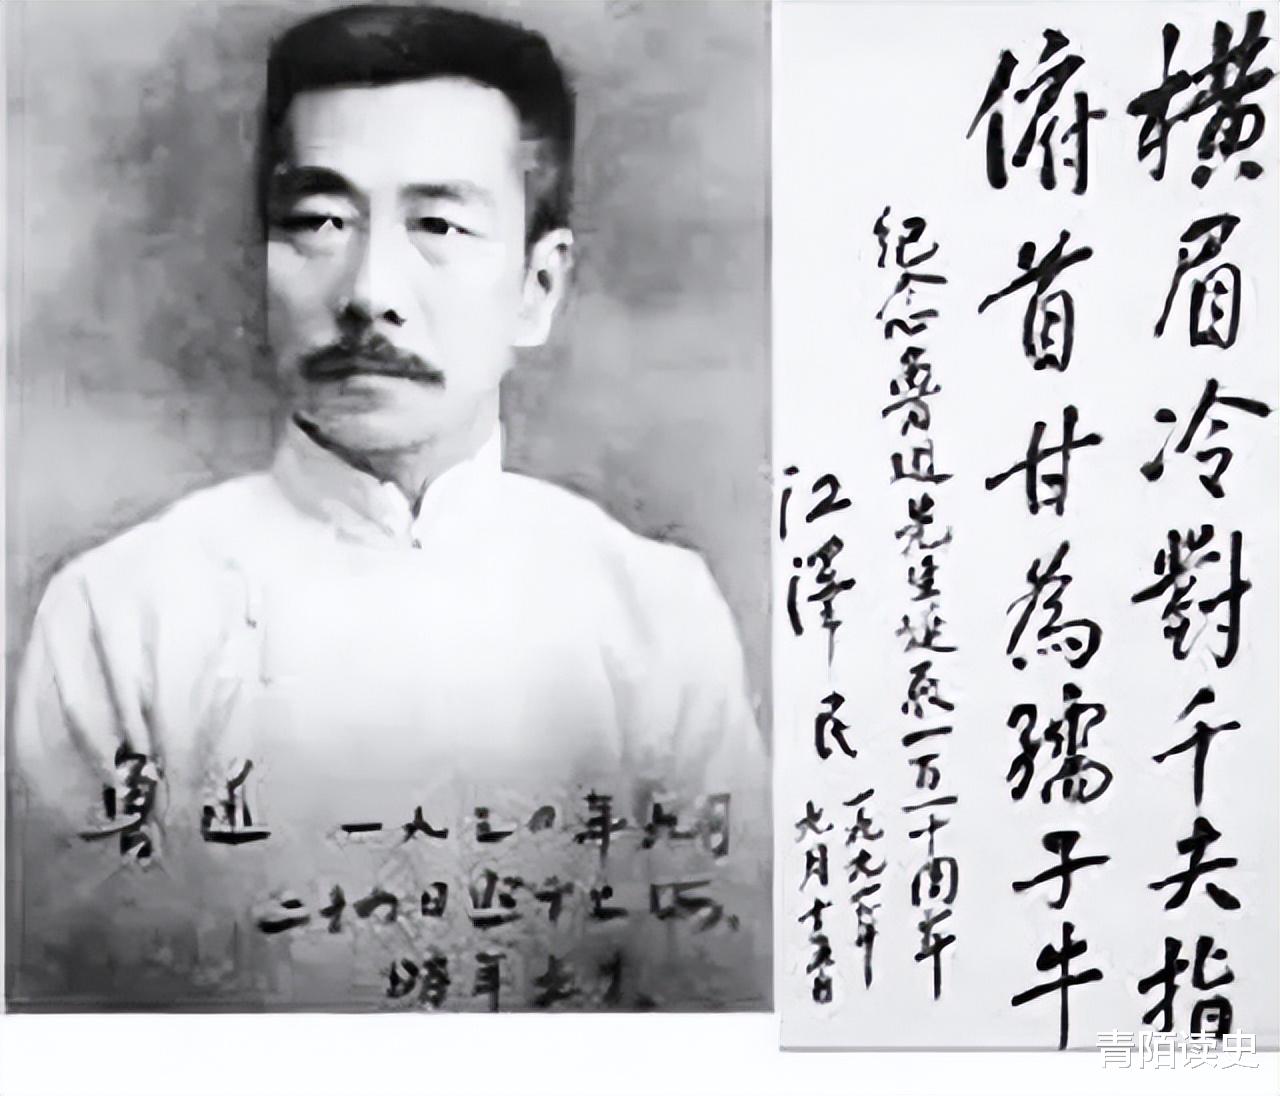 魯迅 一九三〇年九月
日照于上海
時年五十
横眉冷對千夫指
俯首甘為孺子牛
纪念魯迅先生诞辰一百一十周年
江澤民 一九九一年
九月十五日
青陌读史